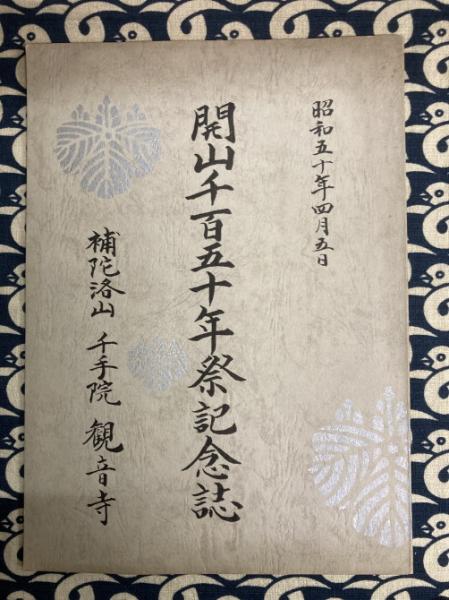 昭和五十年四月五日
開山千百五十年祭記念誌
補陀洛山 千手院 観音寺